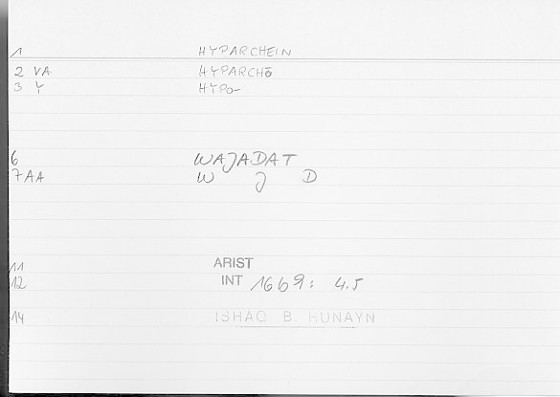 1 HYPARCHEIN
2 VA HYPARCHŌ
3 Y HYPO-
6 WAJADAT
7 AA W J D
11 ARIST
12 INT 16b9: 4.5
14 ISHAQ B. HUNAYN